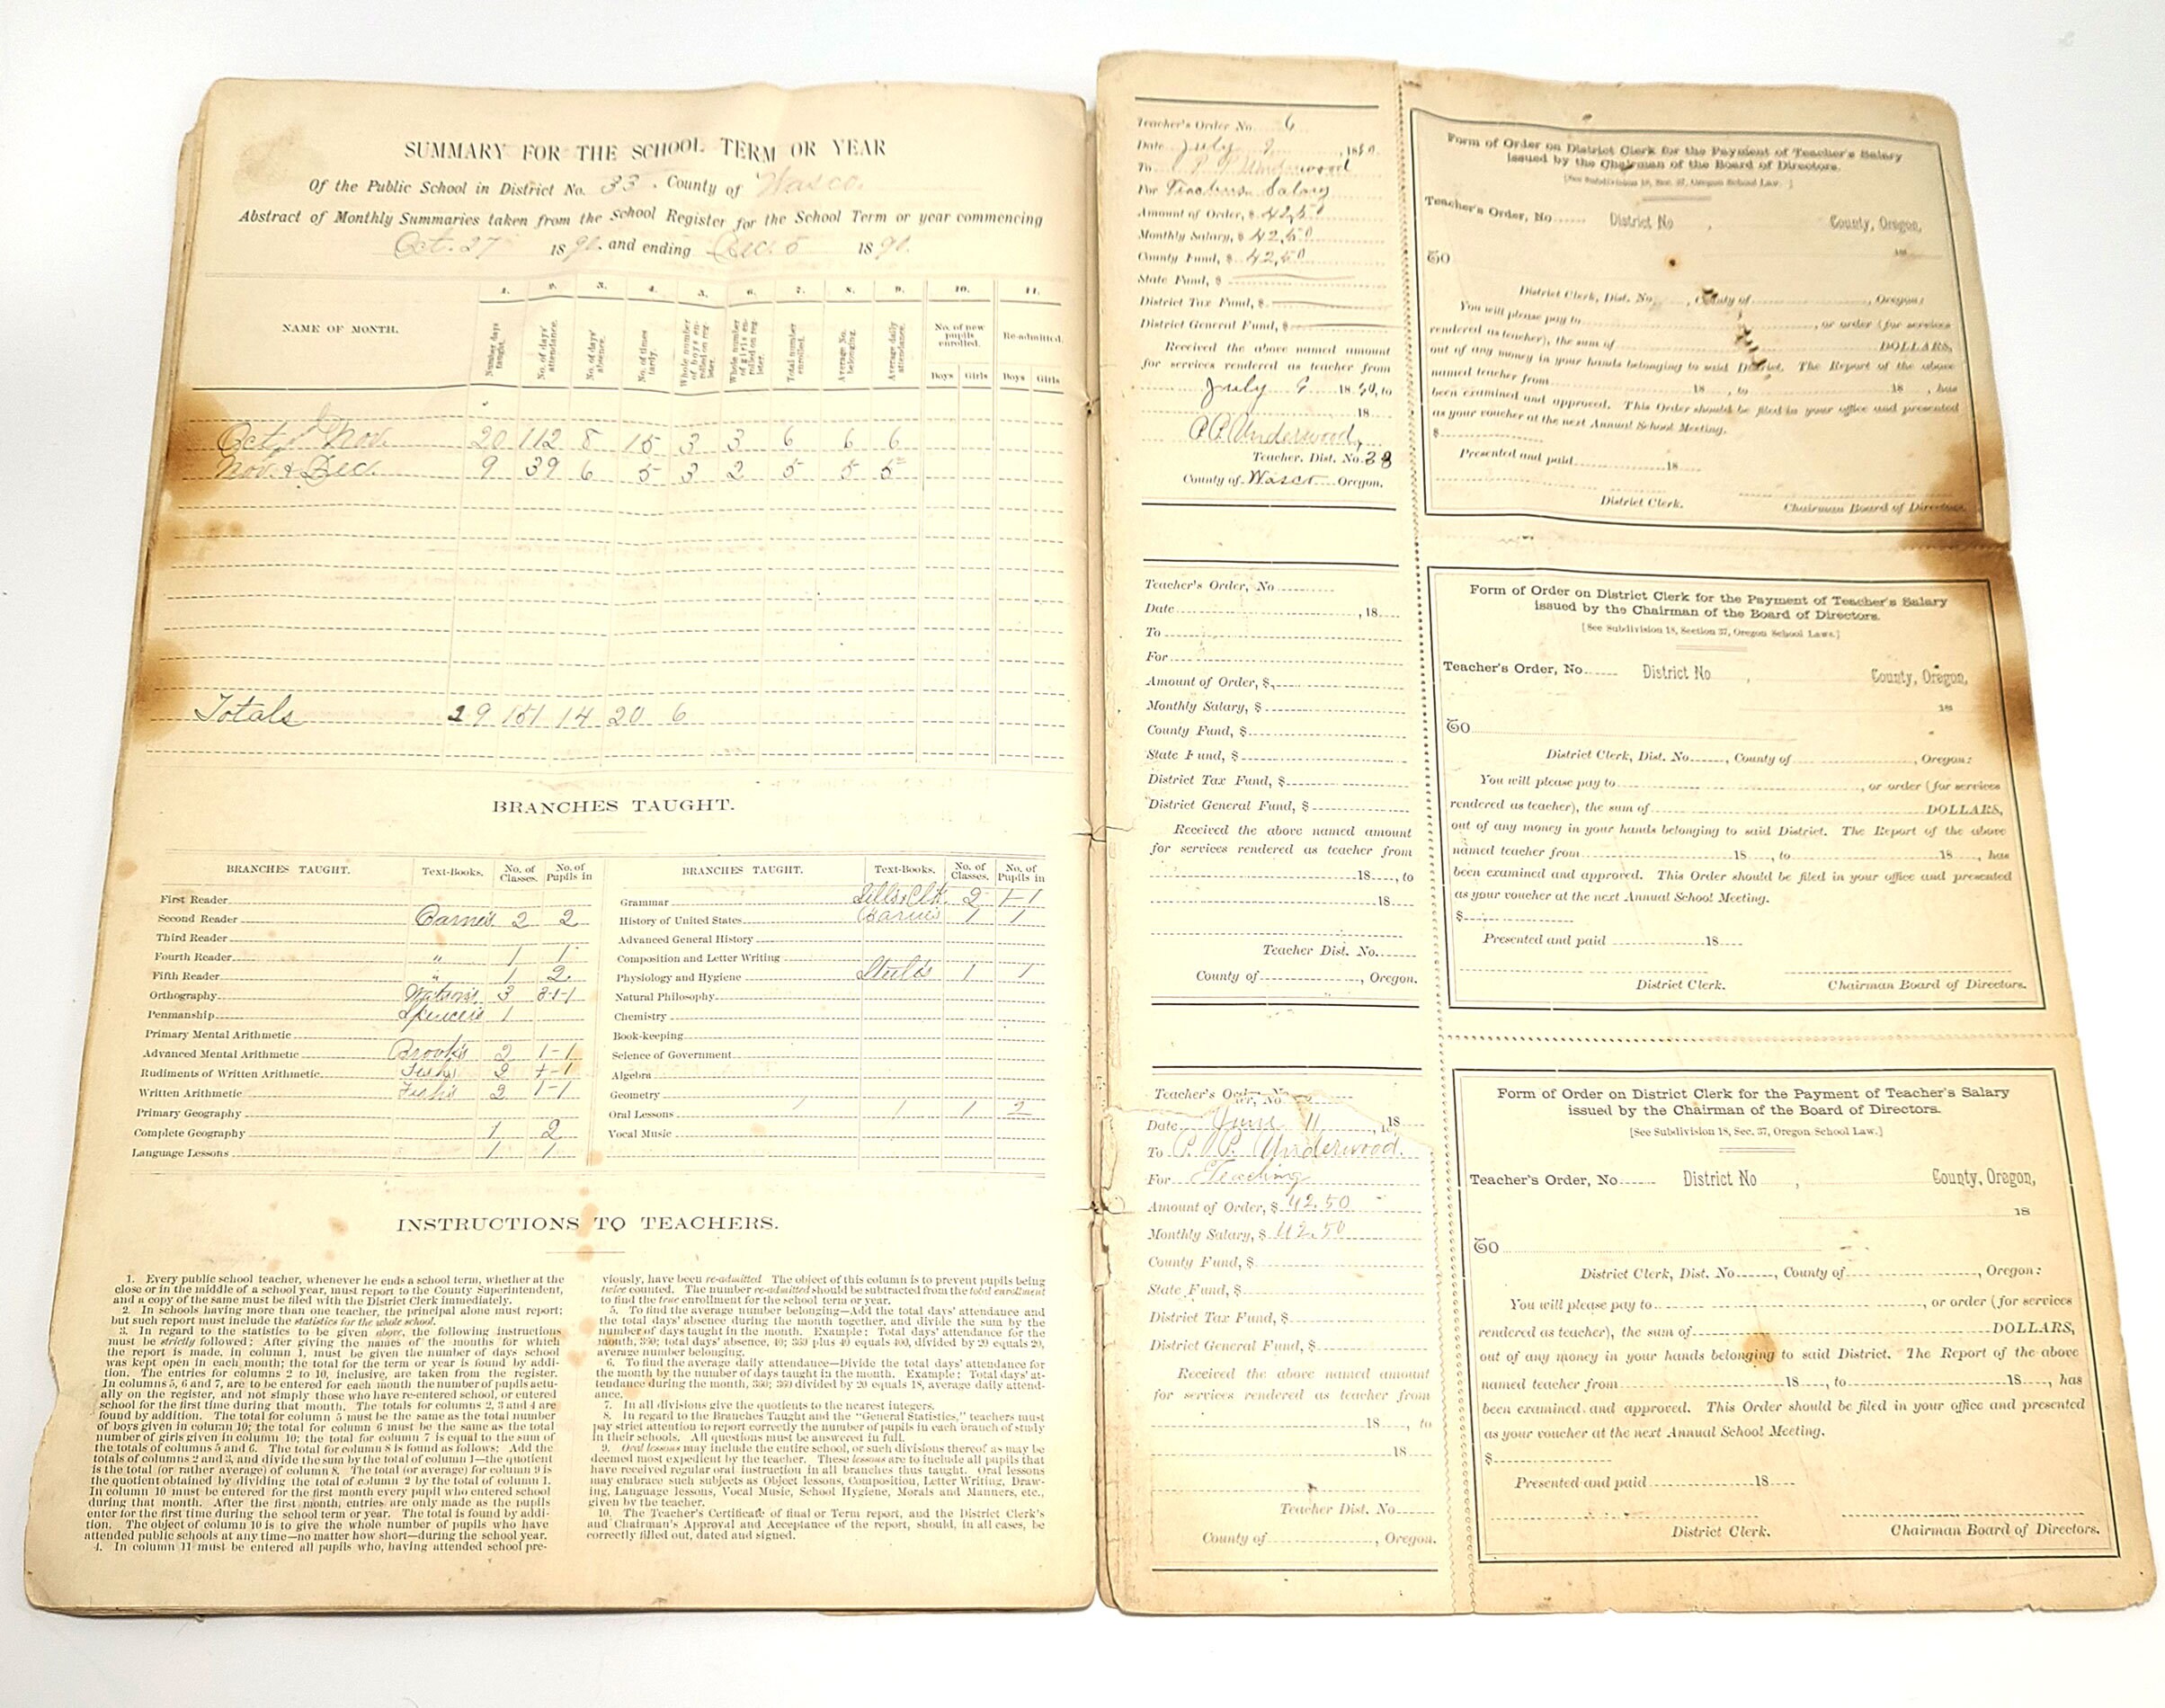 SUMMARY FOR THE SCHOOL TERM OR YEAR
Of the Public School in District No. 33. County of Wasco.
Abstract of Monthly Summaries taken from the School Register for the School Term or year commencing
Oct. 27 1890. and ending Dec. 5 1890.
NAME OF MONTH.
1. 2. 3. 4. 5. 6. 7. 8. 9. 10. 11.
Number days taught.
No. of days' attendance.
No. of days' absence.
No. of times tardy.
Whole number of boys enrolled on register.
Whole number of girls enrolled on register.
Total number enrolled.
Average No. belonging.
Average daily attendance.
No. of new pupils enrolled.
Re-admitted.
Boys Girls Boys Girls
Oct & Nov. 20 112 8 15 3 3 6 6 6
Nov. & Dec. 9 39 6 5 3 2 5 5 5
Totals 29 151 14 20 6
BRANCHES TAUGHT.
BRANCHES TAUGHT. Text-Books. No. of Classes. No. of Pupils in
First Reader
Second Reader Barnes 2 2
Third Reader
Fourth Reader " 1 1
Fifth Reader " 1 2
Orthography Watson's 3 3-1-1
Penmanship Spencers 1
Primary Mental Arithmetic
Advanced Mental Arithmetic Brook's 2 1-1
Rudiments of Written Arithmetic Fish's 2 1-1
Written Arithmetic Fish's 2 1-1
Primary Geography
Complete Geography 1 2
Language Lessons 1 1
BRANCHES TAUGHT. Text-Books. No. of Classes. No. of Pupils in
Grammar 2 1-1
History of United States Barnes 1 1
Advanced General History
Composition and Letter Writing
Physiology and Hygiene Steele's 1 1
Natural Philosophy
Chemistry
Book-keeping
Science of Government
Algebra
Geometry
Oral Lessons 1 1 2
Vocal Music
INSTRUCTIONS TO TEACHERS.
1. Every public school teacher, whenever he ends a school term, whether at the
close or in the middle of a school year, must report to the County Superintendent,
and a copy of the same must be filed with the District Clerk immediately.
2. In schools having more than one teacher, the principal alone must report;
but such report must include the statistics for the whole school.
3. In regard to the statistics to be given above, the following instructions
must be strictly followed: After giving the names of the months for which
the report is made, in column 1, must be given the number of days school
was kept open in each month; the total for the term or year is found by addi-
tion. The entries for columns 2 to 10, inclusive, are taken from the register.
In columns 5, 6 and 7, are to be entered for each month the number of pupils actu-
ally on the register, and not simply those who have re-entered school, or entered
school for the first time during that month. The totals for columns 2, 3 and 4 are
found by addition. The total for column 5 must be the same as the total number
of boys given in column 10; the total for column 6 must be the same as the total
number of girls given in column 10; the total for column 7 is equal to the sum of
the totals of columns 5 and 6. The total for column 8 is found as follows: Add the
totals of columns 2 and 3, and divide the sum by the total of column 1—the quotient
is the total (or rather average) of column 8. The total (or average) for column 9 is
the quotient obtained by dividing the total of column 2 by the total of column 1.
In column 10 must be entered for the first month every pupil who entered school
during that month. After the first month, entries are only made as the pupils
enter for the first time during the school term or year. The total is found by addi-
tion. The object of column 10 is to give the whole number of pupils who have
attended public schools at any time—no matter how short—during the school year.
4. In column 11 must be entered all pupils who, having attended school pre-
viously, have been re-admitted The object of this column is to prevent pupils being
twice counted. The number re-admitted should be subtracted from the total enrollment
to find the true enrollment for the school term or year.
5. To find the average number belonging—Add the total days' attendance and
the total days' absence during the month together, and divide the sum by the
number of days taught in the month. Example: Total days' attendance for the
month, 360; total days' absence, 40; 360 plus 40 equals 400, divided by 20 equals 20,
average number belonging.
6. To find the average daily attendance—Divide the total days' attendance for
the month by the number of days taught in the month. Example: Total days' at-
tendance during the month, 360; 360 divided by 20 equals 18, average daily attend-
ance.
7. In all divisions give the quotients to the nearest integers.
8. In regard to the Branches Taught and the "General Statistics," teachers must
pay strict attention to report correctly the number of pupils in each branch of study
in their schools. All questions must be answered in full.
9. Oral lessons may include the entire school, or such divisions thereof as may be
deemed most expedient by the teacher. These lessons are to include all pupils that
have received regular oral instruction in all branches thus taught. Oral lessons
may embrace such subjects as Object lessons, Composition, Letter Writing, Draw-
ing, Language lessons, Vocal Music, School Hygiene, Morals and Manners, etc.,
given by the teacher.
10. The Teacher's Certificate of final or Term report, and the District Clerk's
and Chairman's Approval and Acceptance of the report, should, in all cases, be
correctly filled out, dated and signed.
Teacher's Order No. 6
Date July 9, 1890.
To P. P. Underwood
For Teachers Salary
Amount of Order, $ 42,50
Monthly Salary, $ 42,50
County Fund, $ 42,50
State Fund, $
District Tax Fund, $
District General Fund, $
Received the above named amount
for services rendered as teacher from
July 9 1890, to
18
P.P. Underwood,
Teacher. Dist. No. 38
County of Wasco Oregon.
Form of Order on District Clerk for the Payment of Teacher's Salary
issued by the Chairman of the Board of Directors.
[See Subdivision 18, Sec. 37, Oregon School Law.]
Teacher's Order, No. District No , County, Oregon,
18
To
District Clerk, Dist. No , County of , Oregon:
You will please pay to , or order (for services
rendered as teacher), the sum of DOLLARS,
out of any money in your hands belonging to said District. The Report of the above
named teacher from 18 , to 18 , has
been examined and approved. This Order should be filed in your office and presented
as your voucher at the next Annual School Meeting.
$
Presented and paid 18
District Clerk. Chairman Board of Directors.
Teacher's Order, No
Date , 18
To
For
Amount of Order, $
Monthly Salary, $
County Fund, $
State Fund, $
District Tax Fund, $
District General Fund, $
Received the above named amount
for services rendered as teacher from
18 , to
18
Teacher Dist. No.
County of , Oregon.
Form of Order on District Clerk for the Payment of Teacher's Salary
issued by the Chairman of the Board of Directors.
[See Subdivision 18, Section 37, Oregon School Laws.]
Teacher's Order, No District No , County, Oregon,
18
To
District Clerk, Dist. No , County of , Oregon:
You will please pay to , or order (for services
rendered as teacher), the sum of DOLLARS,
out of any money in your hands belonging to said District. The Report of the above
named teacher from 18 , to 18 , has
been examined and approved. This Order should be filed in your office and presented
as your voucher at the next Annual School Meeting.
$
Presented and paid 18
District Clerk. Chairman Board of Directors.
Teacher's Order, No.
Date June 11 , 18
To P. P. Underwood.
For Teaching
Amount of Order, $ 42.50
Monthly Salary, $ 42.50
County Fund, $
State Fund, $
District Tax Fund, $
District General Fund, $
Received the above named amount
for services rendered as teacher from
18 , to
18
Teacher Dist. No
County of , Oregon.
Form of Order on District Clerk for the Payment of Teacher's Salary
issued by the Chairman of the Board of Directors.
[See Subdivision 18, Sec. 37, Oregon School Law.]
Teacher's Order, No District No , County, Oregon,
18
To
District Clerk, Dist. No , County of , Oregon:
You will please pay to , or order (for services
rendered as teacher), the sum of DOLLARS,
out of any money in your hands belonging to said District. The Report of the above
named teacher from 18 , to 18 , has
been examined and approved. This Order should be filed in your office and presented
as your voucher at the next Annual School Meeting.
$
Presented and paid 18
District Clerk. Chairman Board of Directors.